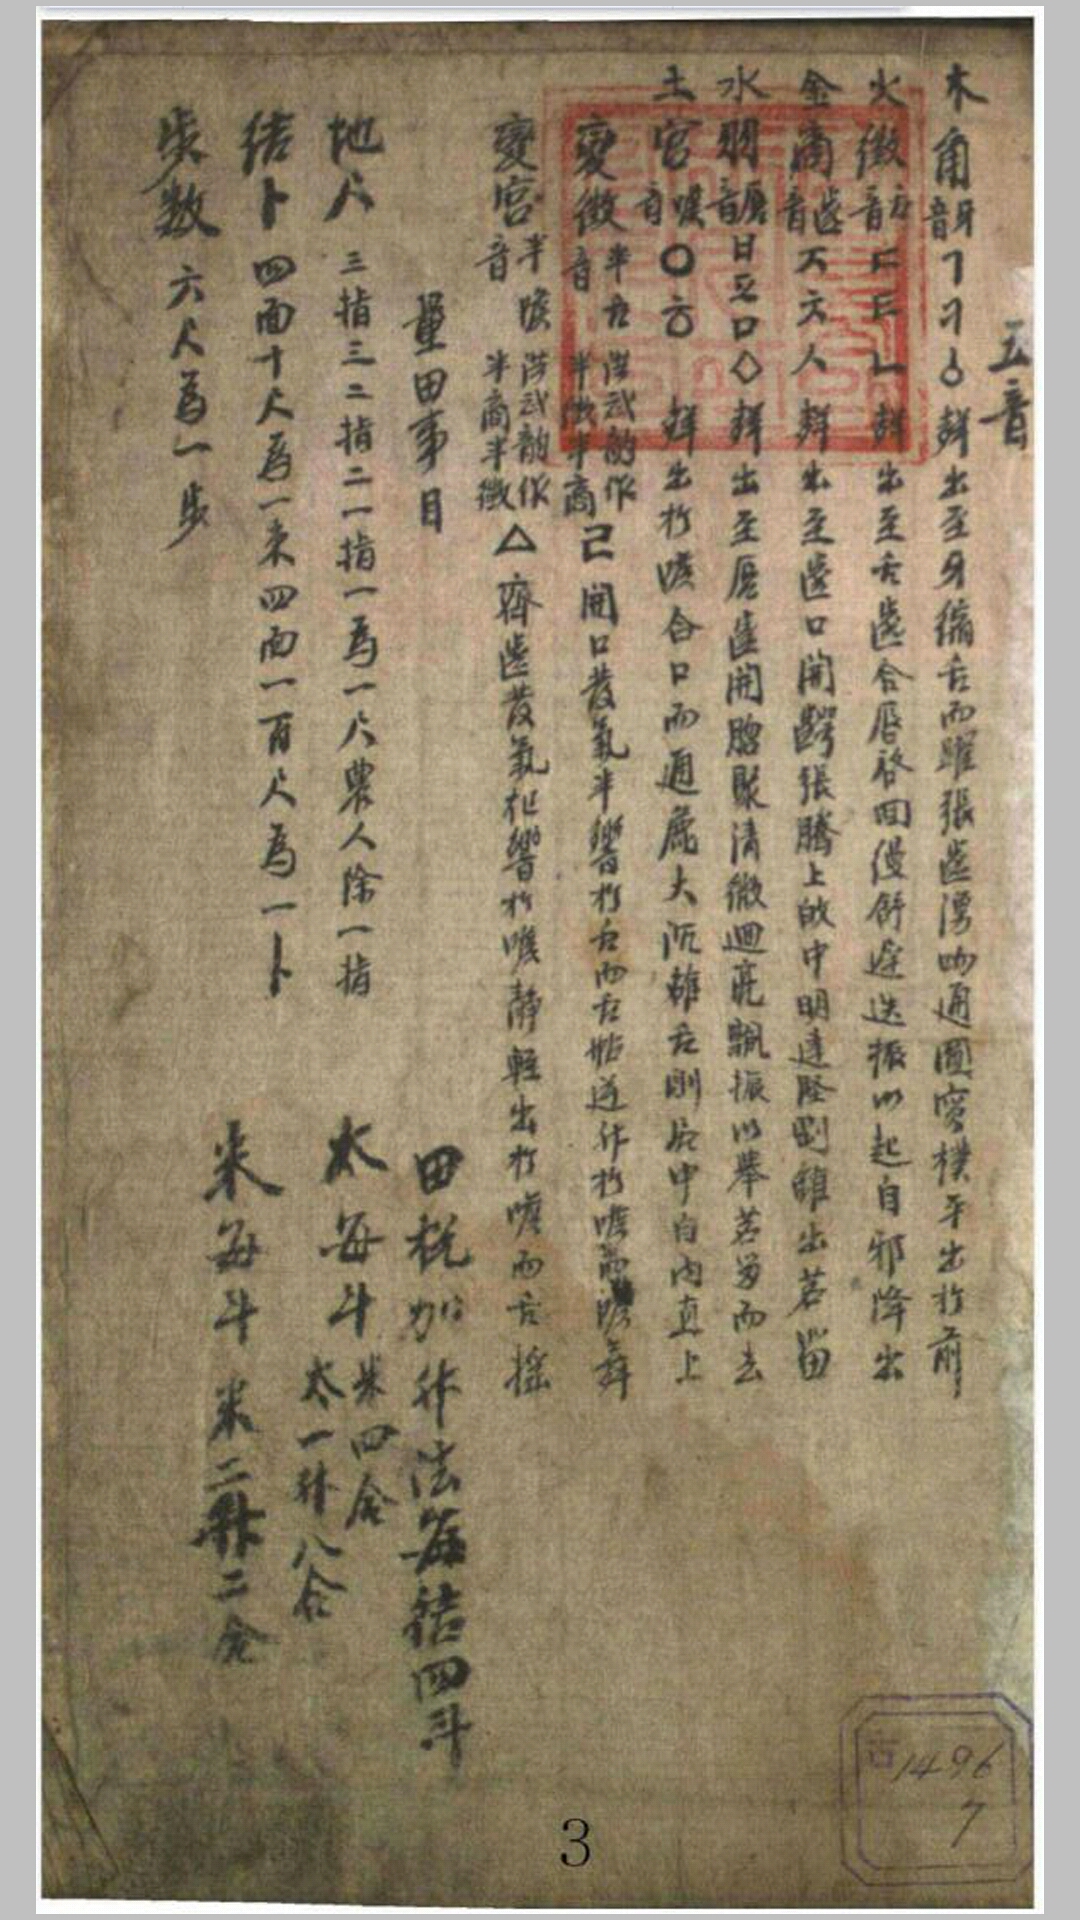 五音
木角牙音ㄱㄱㆁ辭出至牙縮舌而躍張齒湧吻通圓實樸平出於前
火徵舌音ㄷㅌㄴ辭出至舌齒合唇啓回優舒遲迭振以起自邪降出
金商齒音ㅈㅊ人辭出至齒口開齶張騰上的中明達堅剛雖出若留
水羽唇音日ㅁ◇辭出至唇齒開聚清微迴飄振以舉若留而去
土宮喉音ㅇㆆ辭出於喉合口而通大沉雖舌則居中自內直上
變徵半舌音洪武韻作半徵半商己開口發氣半響於舌而舌於喉舞
變宮半喉音洪武韻作半商半徵△齊齒發氣響於喉靜輕出於喉而舌搖
量田事目
地尺三指三二指二一指一為一尺農人除一指
結卜四面十尺為一束四面一百尺為一卜
步数六尺為一步
田税加升法每結四斗
太每斗米四合太一升八合
米每斗米二升二合
古1496
7
3